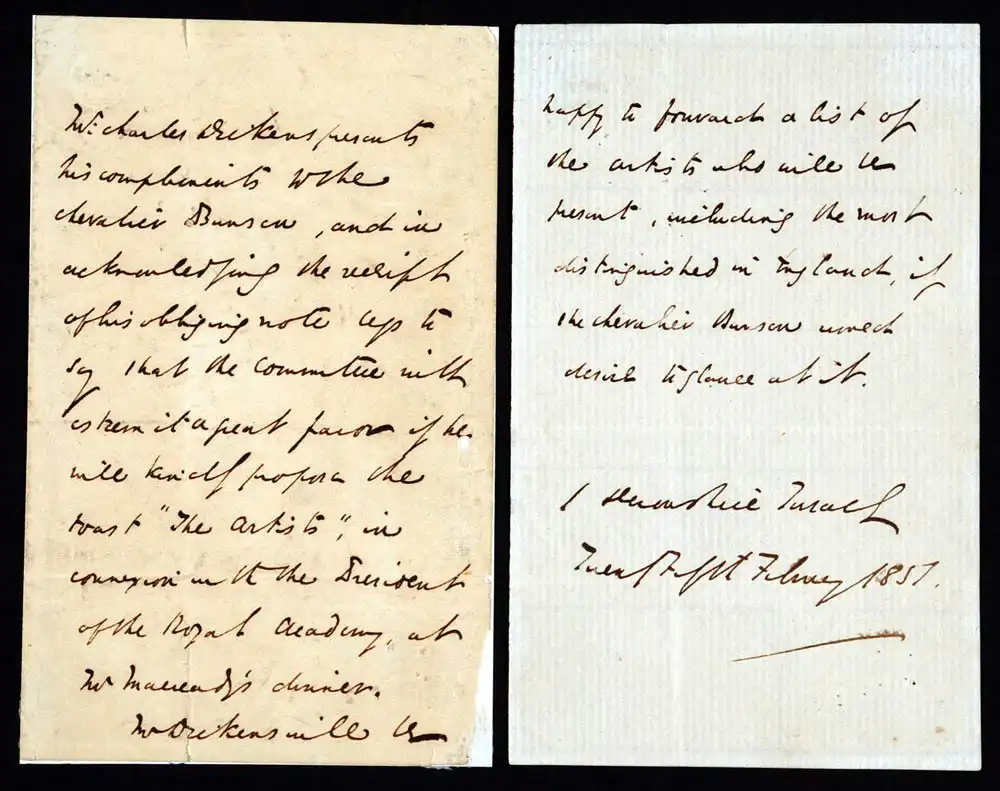 Mr. Charles Dickens presents
his compliments to the
Chevalier Bunsen, and in
acknowledging the receipt
of his obliging note begs to
say that the committee will
esteem it a great favor if he
will kindly propose the
toast "The Artists", in
connexion with the President
of the Royal Academy, at
Mr Macready's dinner.
Mr Dickens will be
happy to forward a list of
the artists who will be
present, including the most
distinguished in England, if
the Chevalier Bunsen would
desire to glance at it.
1 Devonshire Terrace
Twenty Fifth February 1851.